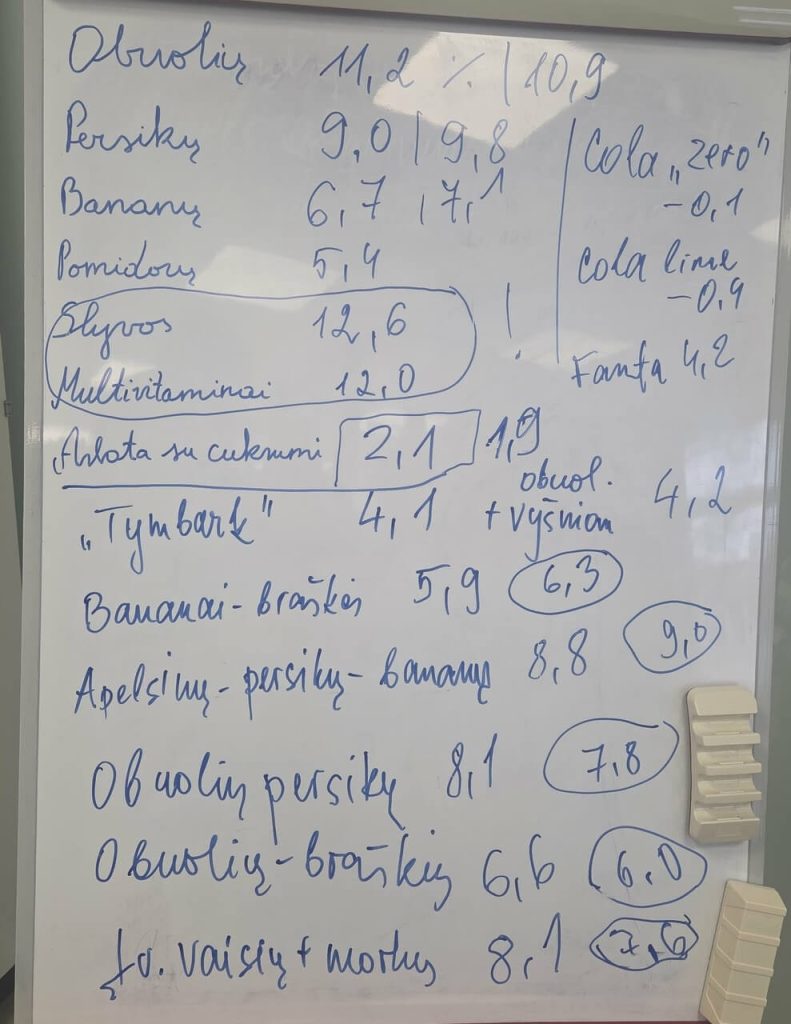 Obuolių 11,2 % | 10,9
Persikų 9,0 | 9,8
Bananų 6,7 | 7,1
Pomidorų 5,4
Slyvos 12,6 !
Multivitaminai 12,0
Cola „zero"
-0,1
Cola lime
-0,9
Fanta 4,2
Arbata su cukrumi 2,1 1,9
„Tymbark" 4,1
obuol.
+ vyšnios 4,2
Bananai-braškės 5,9 6,3
Apelsinų-persikų-bananų 8,8 9,0
Obuolių persikų 8,1 7,8
Obuolių-braškių 6,6 6,0
Įv. vaisių + morkų 8,1 7,6